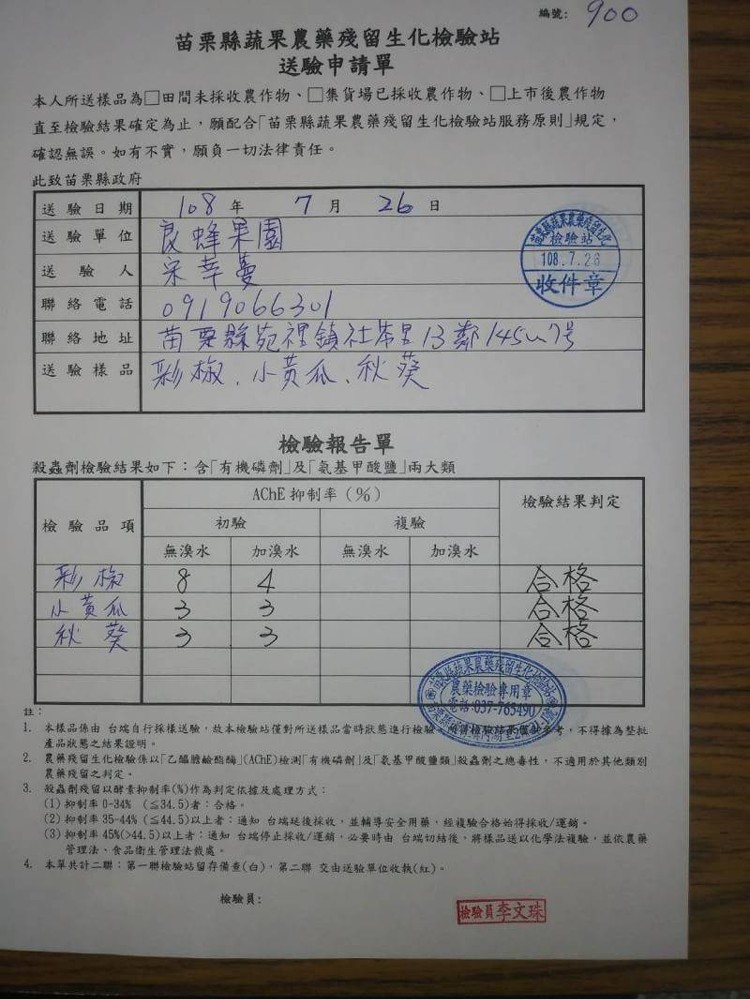 編號: 900
苗栗縣蔬果農藥殘留生化檢驗站
送驗申請單
本人所送樣品為□田間未採收農作物、□集貨場已採收農作物、□上市後農作物
直至檢驗結果確定為止,願配合「苗栗縣蔬果農藥殘留生化檢驗站服務原則」規定,
確認無誤。如有不實,願負一切法律責任。
此致苗栗縣政府
送驗日期 108 年 7 月 26 日
送驗單位 良蜂果園
送驗人 宋莘蔓
聯絡電話 0919066301
聯絡地址 苗栗縣苑裡鎮社苓里13鄰145之7號
送驗樣品 彩椒、小黃瓜、秋葵
苗栗縣蔬果農藥殘留生化
檢驗站
108.7.26
收件章
檢驗報告單
殺蟲劑檢驗結果如下:含「有機磷劑」及「氨基甲酸鹽」兩大類
檢驗品項 AChE 抑制率(%) 檢驗結果判定
初驗 複驗
無溴水 加溴水 無溴水 加溴水
彩椒 8 4 合格
小黃瓜 3 3 合格
秋葵 3 3 合格
苗栗縣蔬果農藥殘留生化檢驗站
農藥檢驗專用章
電話:037-765490
註:
1. 本樣品係由 台端自行採樣送驗,故本檢驗站僅對所送樣品當時狀態進行檢驗,所得檢驗結果僅供參考,不得據為整批
產品狀態之結果證明。
2. 農藥殘留生化檢驗係以「乙醯膽鹼酯酶」(AChE)檢測「有機磷劑」及「氨基甲酸鹽類」殺蟲劑之總毒性,不適用於其他類別
農藥殘留之判定。
3. 殺蟲劑殘留以酵素抑制率(%)作為判定依據及處理方式:
(1) 抑制率 0-34% (≦34.5)者:合格。
(2) 抑制率 35-44% (≦44.5)以上者:通知 台端延後採收,並輔導安全用藥,經複驗合格始得採收/運銷。
(3) 抑制率 45%(>44.5)以上者:通知 台端停止採收/運銷,必要時由 台端切結後,將樣品送以化學法複驗,並依農藥
管理法、食品衛生管理法裁處。
4. 本單共計二聯:第一聯檢驗站留存備查(白),第二聯 交由送驗單位收執(紅)。
檢驗員:
檢驗員李文珠